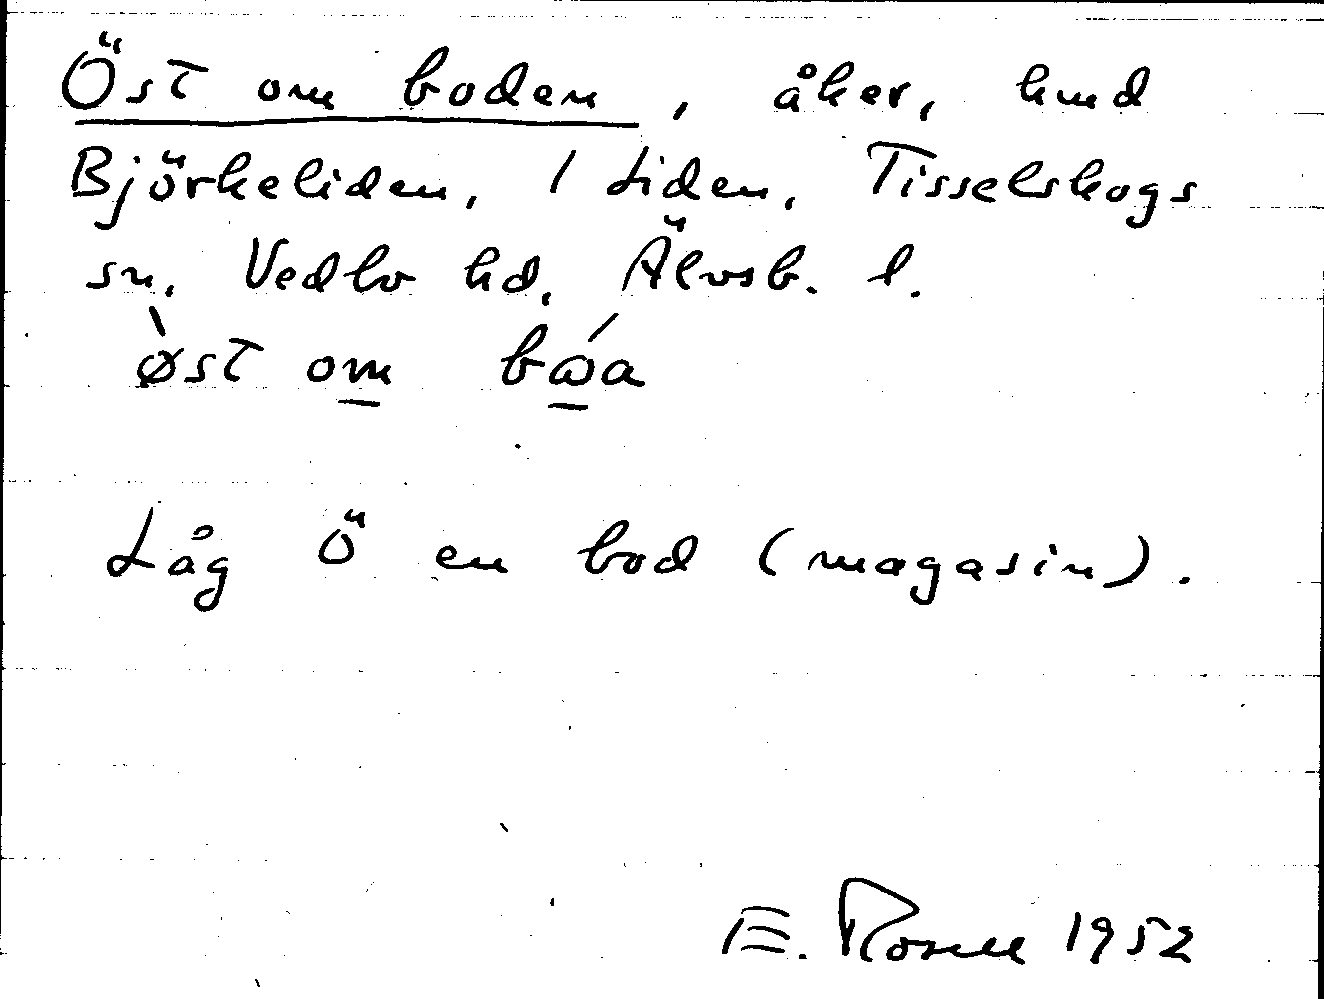 Öst om boden, åker, hmd
Björkeliden, 1 Liden, Tisselskogs
sn, Vedbo hd, Älvsb. l.
\øst om bώa
Låg Ö en bod (magasin).
E. Rosell 1952